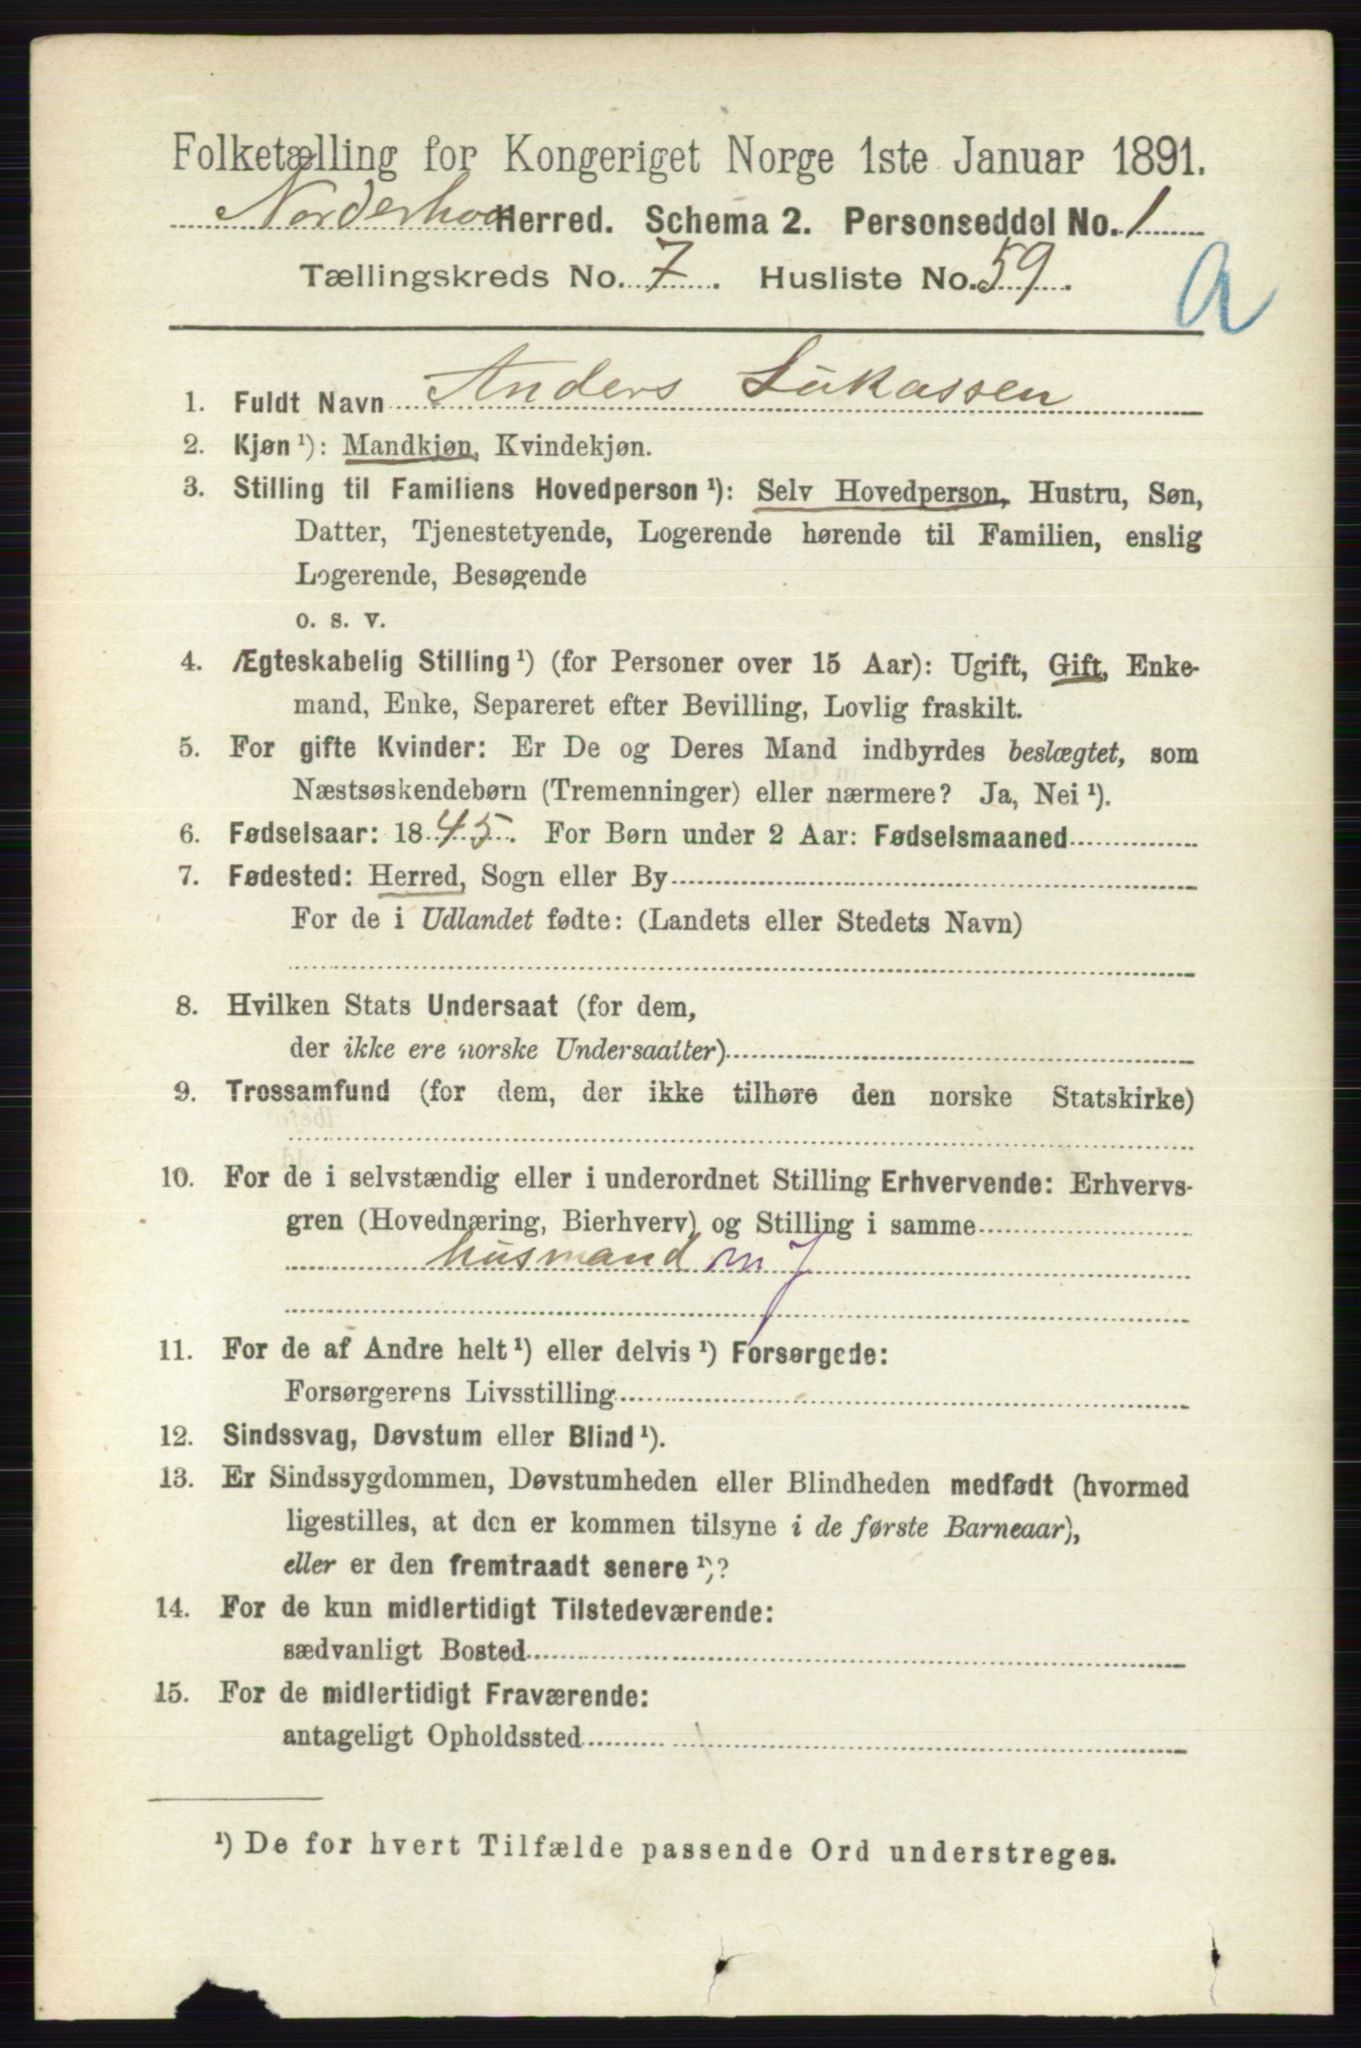 Folketælling for Kongeriget Norge 1ste Januar 1891.
Norderhov Herred. Schema 2. Personseddel No. 1
Tællingskreds No. 7. Husliste No. 59.
a
1. Fuldt Navn Anders Lukassen
2. Kjøn ¹): Mandkjøn, Kvindekjøn.
3. Stilling til Familiens Hovedperson ¹): Selv Hovedperson, Hustru, Søn,
Datter, Tjenestetyende, Logerende hørende til Familien, enslig
Logerende, Besøgende
o. s. v.
4. Ægteskabelig Stilling ¹) (for Personer over 15 Aar): Ugift, Gift, Enke-
mand, Enke, Separeret efter Bevilling, Lovlig fraskilt.
5. For gifte Kvinder: Er De og Deres Mand indbyrdes beslægtet, som
Næstsøskendebørn (Tremenninger) eller nærmere? Ja, Nei ¹).
6. Fødselsaar: 1845. For Børn under 2 Aar: Fødselsmaaned
7. Fødested: Herred, Sogn eller By
For de i Udlandet fødte: (Landets eller Stedets Navn)
8. Hvilken Stats Undersaat (for dem,
der ikke ere norske Undersaatter)
9. Trossamfund (for dem, der ikke tilhøre den norske Statskirke)
10. For de i selvstændig eller i underordnet Stilling Erhvervende: Erhvervs-
gren (Hovednæring, Bierhverv) og Stilling i samme
husmand m j
11. For de af Andre helt ¹) eller delvis ¹) Forsørgede:
Forsørgerens Livsstilling
12. Sindssvag, Døvstum eller Blind ¹).
13. Er Sindssygdommen, Døvstumheden eller Blindheden medfødt (hvormed
ligestilles, at den er kommen tilsyne i de første Barneaar),
eller er den fremtraadt senere ¹)?
14. For de kun midlertidigt Tilstedeværende:
sædvanligt Bosted
15. For de midlertidigt Fraværende:
antageligt Opholdssted
¹) De for hvert Tilfælde passende Ord understreges.